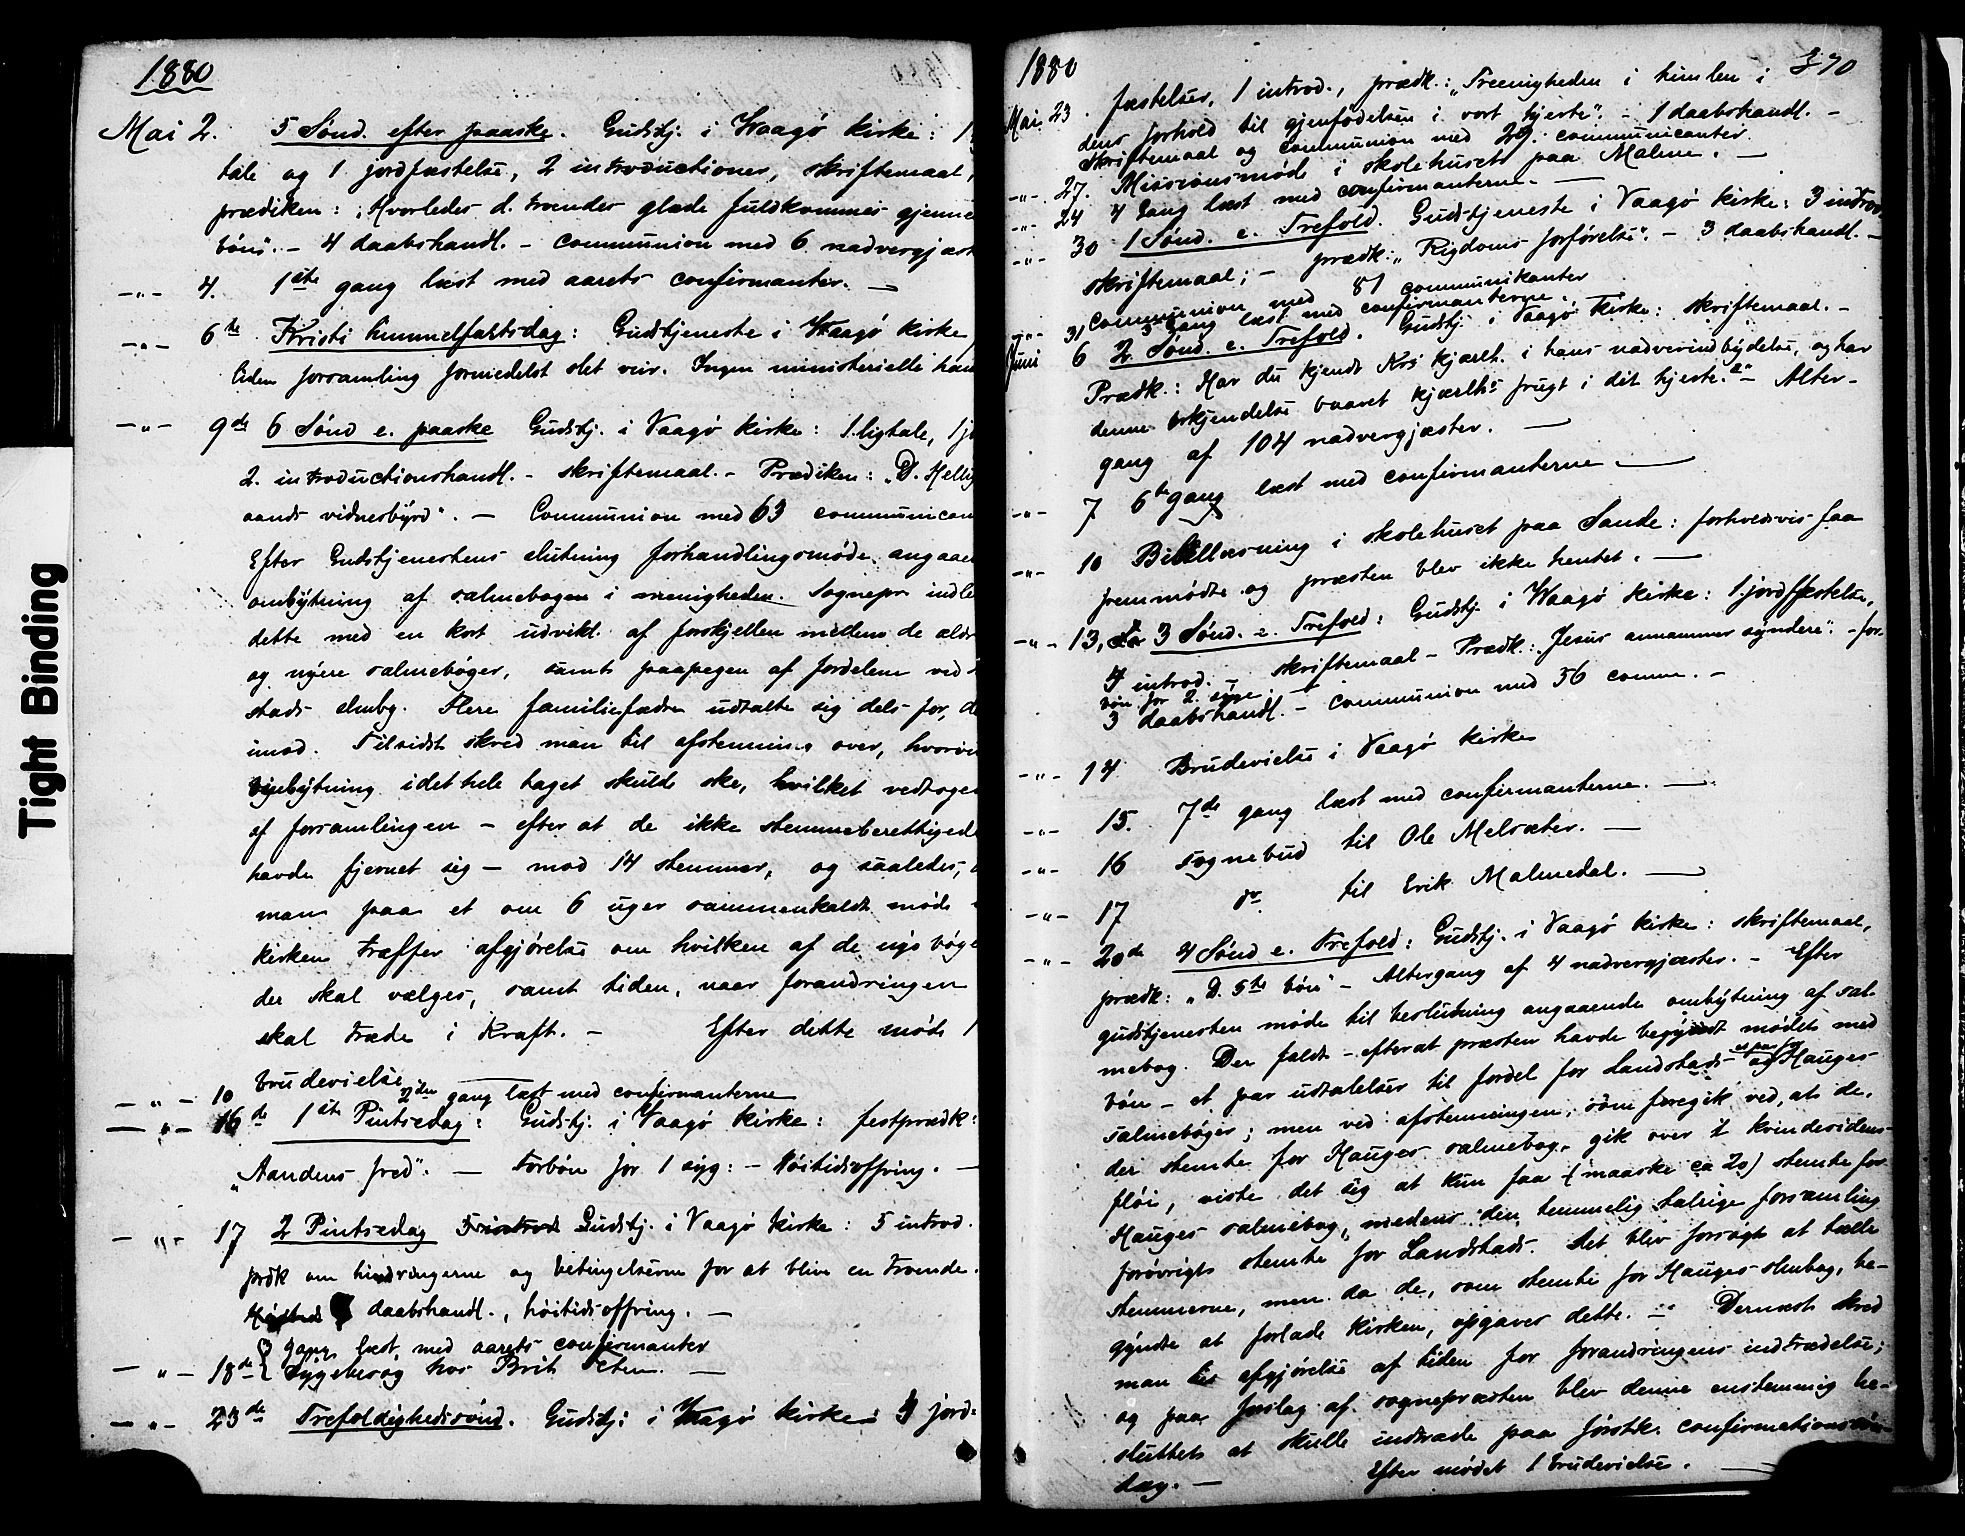 1880
Mai 2. 5 Sønd. efter paaske. Gudstj. i Waagø kirke: 1
tale og 1 jordfæstelse, 2 introductioner, skriftemaal,
prædiken: "Hvorledes d. troendes glæde fuldkommes gjennem
bøn". - 4 daabshandl. - Communion med 6 nadvergjæst
-"- 4. 1ste gang læst med aarets confirmanter. -
-"- 6te Kristi himmelfartsdag: Gudstjeneste i Waagø kirke
liden forsamling formedelst slet veir. Ingen ministerielle han
-"- 9de 6 Sønd e. paaske Gudstj. i Vaagø kirke: 1 ligtale, 1 jo
2. introductionshandl. - skriftemaal. - Prædiken: "D. Hellig
aands vidnesbyrd". - Communion med 63 communican
Efter Gudstjenestens slutning forhandlingsmøde angaaen
ombytning af salmebogen i menigheden. Sognepr. indle
dette med en kort udvikl. af forskjellen mellem de ældr
og nyere salmebøger, samt paapegen af fordelene ved
stads slmbg. Flere familiefædre udtalte sig dels for, d
imod. Tilsidst skred man til afstemning over, hvorvi
ombytning i det hele taget skulde ske, hvilket vedtoges
af forsamlingen - efter at de ikke stemmeberettigede
havde fjernet sig - mod 14 stemmer, og saaledes,
man paa et om 6 uger sammenkaldt møde
kirken træffer afgjørelse om hvilken af de nye bøge
der skal vælges, samt tiden, naar forandringen
skal træde i Kraft. - Efter dette møde 1
brudevielse
-"- 10 2den gang læst med confirmanterne
-"- 16de 1ste Pintsedag: Gudstj. i Vaagø kirke: festprædk:
"Aandens fred". - Forbøn for 1 syg: - Høitidsoffring. -
-"- 17 2 Pintsedag Gudstj. i Vaagø kirke: 5 introd.
prdk om hindringerne og betingelserne for at blive en troende.
daabshandl., høitidsoffring. -
gang læst med aarets confirmanter
-"- 18de Sygebesøg hos Brit
-"- 23de Trefoldighedssønd. Gudstj: i Waagø kirke: jord-
1880 370
Mai 23. fæstelser, 1 introd., prædk.: "Treenigheden i himlen i
dens forhold til gjenfødelsen i vort hjerte". - 1 daabshandl. -
Skriftemaal og communion med 29. communicanter.
-"- 27. Missionsmøde i skolehuset paa Malme. -
-"- 24 4 Gang læst med confirmanterne. -
-"- 30 1 Sønd. e. Trefold. Gudstjeneste i Vaagø kirke: 3 introd.
skriftemaal; - prædk: "Rigdoms forførelse". - 3 daabshandl. -
Communion med 81 communikanter
-"- 31 gang læst med confirmanterne.
Juni 6 2. Sønd. e. Trefold. Gudstj. i Vaagø kirke: skriftemaal. -
Prædk.: Har du kjendt Krs kjærlh. i hans nadverindbydelse, og har
denne erkjendelse baaret kjærlhs frugt i dit hjerte?" - Alter-
gang af 104 nadvergjæster. -
-"- 7 6te gang læst med confirmanterne. -
-"- 10 Bibellæsning i skolehuset paa Sande: forholdsvis faa
fremmødte og præsten blev ikke hentet. -
-"- 13, 3 Sønd. e. Trefold: Gudstj. i Waagø kirke: 1 jordfæstelse,
4 introd. - skriftemaal - Prædk.: "Jesus annammer syndere". - for-
bøn for 2 syge. -
3 daabshandl. - communion med 36 comm. -
-"- 14 Brudevielse i Vaagø kirke
-"- 15. 7de gang læst med confirmanterne. -
-"- 16 sognebud til Ole Melsæter. -
-"- 17 do til Erik Malmedal. -
-"- 20de 4 Sønd e. Trefold: Gudstj. i Vaagø kirke: skriftemaal,
prædk: "D. 5te bøn" - Altergang af 4 nadvergjæster. - Efter
gudstjenesten møde til beslutning angaaende ombytning af sal-
mebog. Der faldt - efterat præsten havde begyndt mødet med
bøn - et par udtalelser til fordel for Landstads og et par for Hauges
salmebøger; men ved afstemningen, som foregik ved, at de,
der stemte for Hauges salmebog, gik over i kvindesidens
fløi, viste det sig at kun faa (maaske ca 20) stemte for
Hauges salmebog, medens den temmelig talrige forsamling
forøvrigt stemte for Landstads. Det blev forsøgt at tælle
stemmerne, men da de, som stemte for Hauges slmbog, be-
gyndte at forlade kirken, opgaves dette. - Dernæst skred
man til afgjørelse af tiden for forandringens indtrædelse;
og paa forslag af sognepræsten blev denne enstemmig be-
sluttet at skulle indtræde paa førstk. confirmations-
dag. - Efter mødet 1 brudevielse. -
Tight Binding